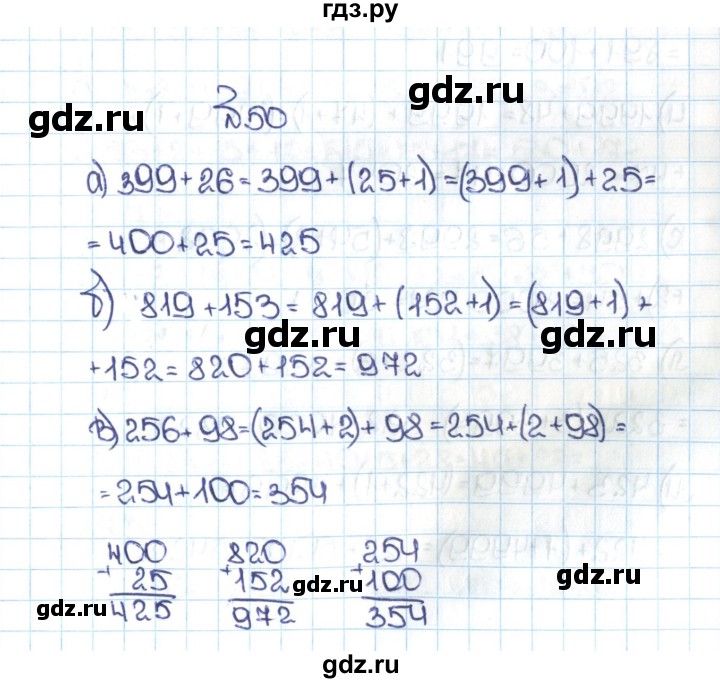 гдз.ру
gdz.ru
gdz.ru
№50
а) 399+26=399+(25+1)=(399+1)+25=
=400+25=425
gdz.ru
б) 819+153=819+(152+1)=(819+1)+
gdz.ru
gdz.ru
+152=820+152=972
в) 256+98=(254+2)+98=254+(2+98)=
gdz.ru
gdz.ru
=254+100=354
400 820 254
+ 25 +152 +100
gdz.ru
gdz.ru
gdz.ru
425 972 354
gdz.ru